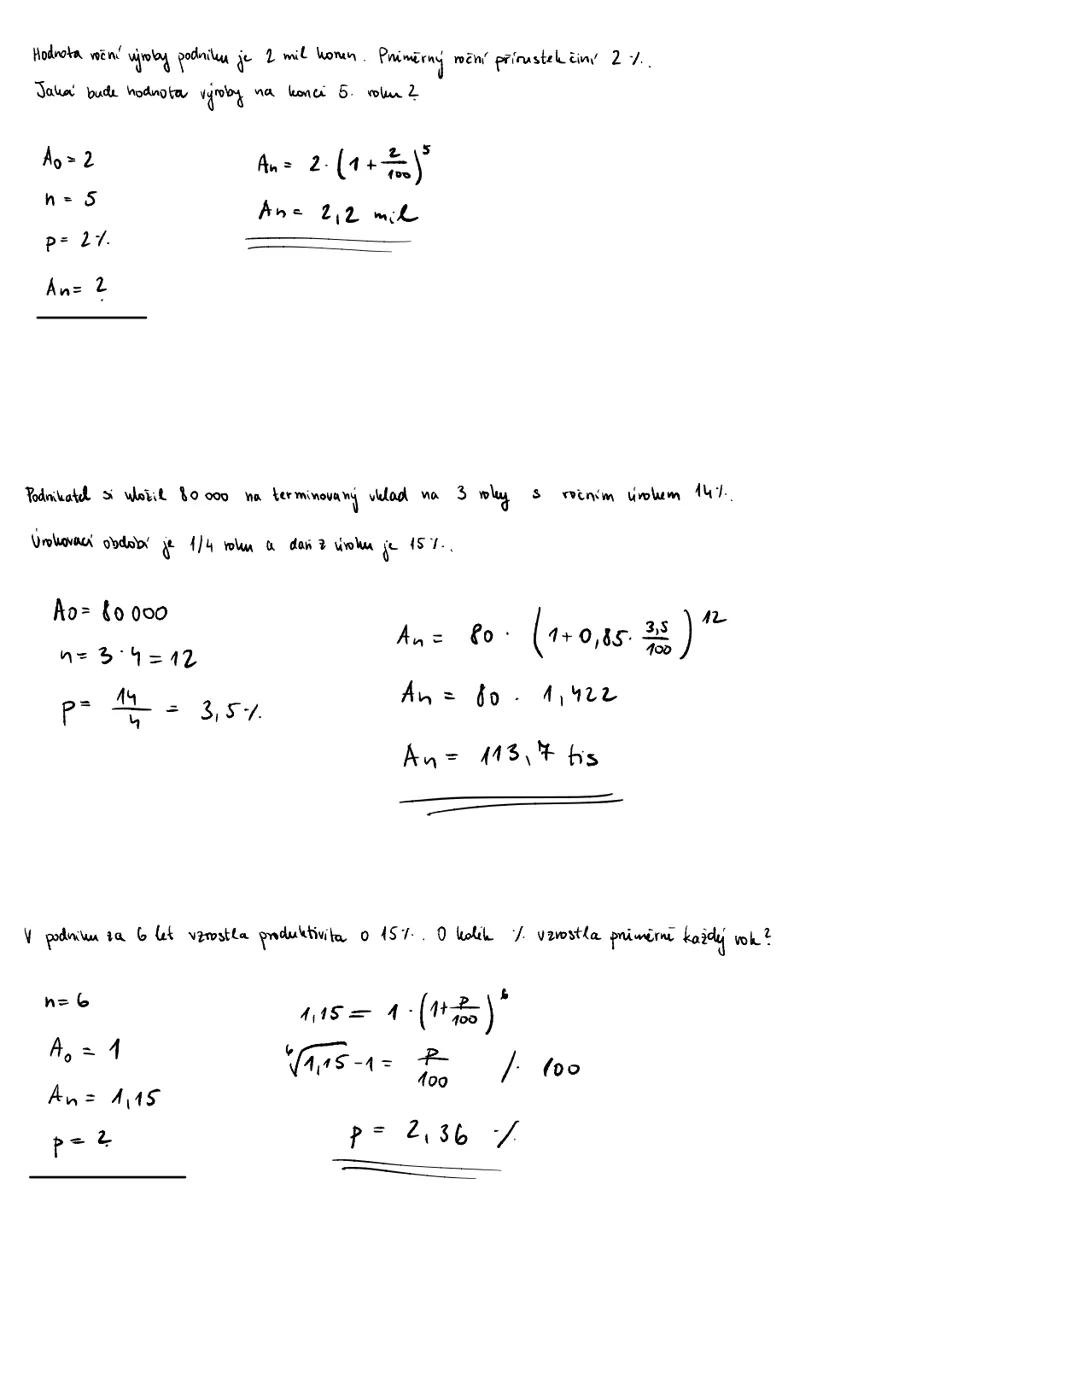 Hodnota roční výroby podniku je 2 mil korun. Průměrný roční přírustek činí 2 %.
Jaká bude hodnota výroby na konci 5. roku?
A₀ = 2
n = 5
p = 2%
An = ?
An = 2 · (1 + 2/100)^5
An = 2,2 mil
Podnikatel si uložil 80 000 na terminovaný vklad na 3 roky s ročním úrokem 14%.
Úrokovací období je 1/4 roku a daň z úroku je 15%.
A0 = 80 000
n = 3 · 4 = 12
p = 14/4 = 3,5%
An = 80 · (1 + 0,85 · 3,5/100)^12
An = 80 · 1,422
An = 113,7 tis
V podniku za 6 let vzrostla produktivita o 15%. O kolik % vzrostla průměrně každý rok?
n = 6
A₀ = 1
An = 1,15
p = ?
1,15 = 1 · (1 + p/100)^6
⁶√1,15 - 1 = p/100 /· 100
p = 2,36 %